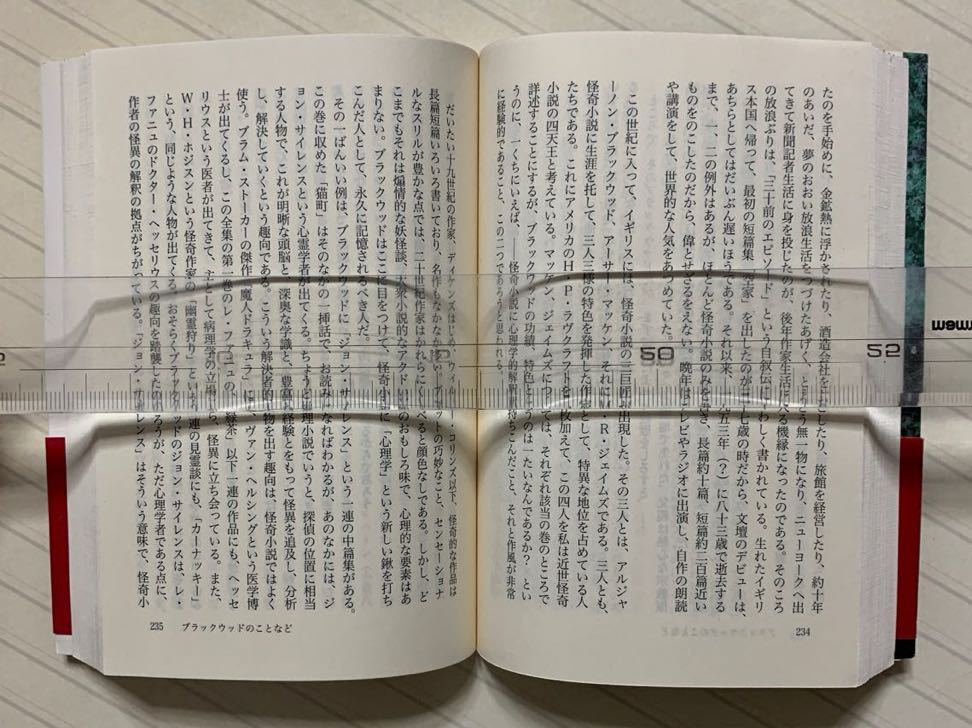 たのを手始めに、金鉱熱に浮かされたり、酒造会社を
したり、旅館を経営したり、約十年
のあいだ、夢のおおい放浪生活をつづけたあげく、
無一物になり、ニューヨークへ出
てきて新聞記者生活に身を投じたのが、後年作家生活に
機縁になったのである。そのころ
の放浪ぶりは、「三十前のエピソード」という自叙伝にくわしく書かれている。生れたイギリ
ス本国へ帰って、最初の短篇集「空家」を出したのが三十七歳の時だから、文壇のデビューは、
あちらとしてはだいぶん遅いほうである。それ以来、一九五三年(?)に八十三歳で逝去する
まで、一、二の例外はあるが、ほとんど怪奇小説のみを書き、長篇約十篇、短篇約二百篇近い
ものをのこしたのだから、偉とせざるをえない。晩年はテレビやラジオに出演し、自作の朗読
や講演をして、世界的な人気をあつめていた。
この世紀に入って、イギリスには、怪奇小説の三巨匠が出現した。その三人とは、アルジャ
ーノン・ブラックウッド、アーサー・マッケン、それにM・R・ジェイムズである。三人とも、
怪奇小説に生涯を托して、三人三様の特色を発揮した作家として、特異な地位を占めている人
たちである。これにアメリカのH・P・ラヴクラフトを一枚加えて、この四人を私は近世怪奇
小説の四天王と考えている。マッケン、ジェイムズについては、それぞれ該当の巻のところで
詳述することにするが、ブラックウッドの功績、特色というのは一たいなんであるか? とい
うのに、一くちにいえば、——怪奇小説に心理学的解釈を持ちこんだこと、それと作風が非常
に経験的であること、この二つであろうと思われる。
234
だいたい十九世紀の作家、ディケンズはじめ、ウィルキー・コリンズ以下、怪奇的な作品は
長篇短篇いろいろ書いており、名作もなかなか多い。プロットの巧妙なこと、センセーショナ
ルなスリルが豊かな点では、二十世紀作家はかれらにくらべると顔色なしである。しかし、ど
こまでもそれは煽情的な妖怪談、大衆小説的なアクどい
のおもしろ味で、心理的な要素はあ
まりない。ブラックウッドはここに目をつけて、怪奇小説に「心理学」という新しい鍬を打ち
こんだ人として、永久に記憶されるべき人だ。
その一ばんいい例は、ブラックウッドに「ジョン・サイレンス」という一連の中篇集がある。
この巻に収めた「猫町」はそのなかの一挿話で、お読みになればわかるが、あのなかには、ジ
ョン・サイレンスという心霊学者が出てくる。ちょうど推理小説でいうと、探偵の位置に相当
する人物で、これが明晰な頭脳と、深奥な学識と、豊富な経験とをもって怪異を追及し、分析
し、解決していくという趣向である。こういう解決者的人物を出す趣向は、怪奇小説ではよく
使う。ブラム・ストーカーの傑作「魔人ドラキュラ」にも、ヴァン・ヘルシングという医学博
士が出てくるし、この全集の第一巻のレ・ファニュの、「緑茶」以下一連の作品にも、ヘッセ
リウスという医者が出てきて、主として病理学の立場から、怪異に立ち会っている。また、
W・H・ホジスンという怪奇作家の「幽霊狩り」という一連の見霊談にも、「カーナッキー」
という、同じような人物が出てくる。おそらくブラックウッドのジョン・サイレンスは、レ・
ファニュのドクター・ヘッセリウスの趣向を踏襲したのだろうが、ただ心理学者である点に、
作者の怪異の解釈の拠点がちがっている。「ジョン・サイレンス」はそういう意味で、怪奇小
235 ブラックウッドのことなど
50
52